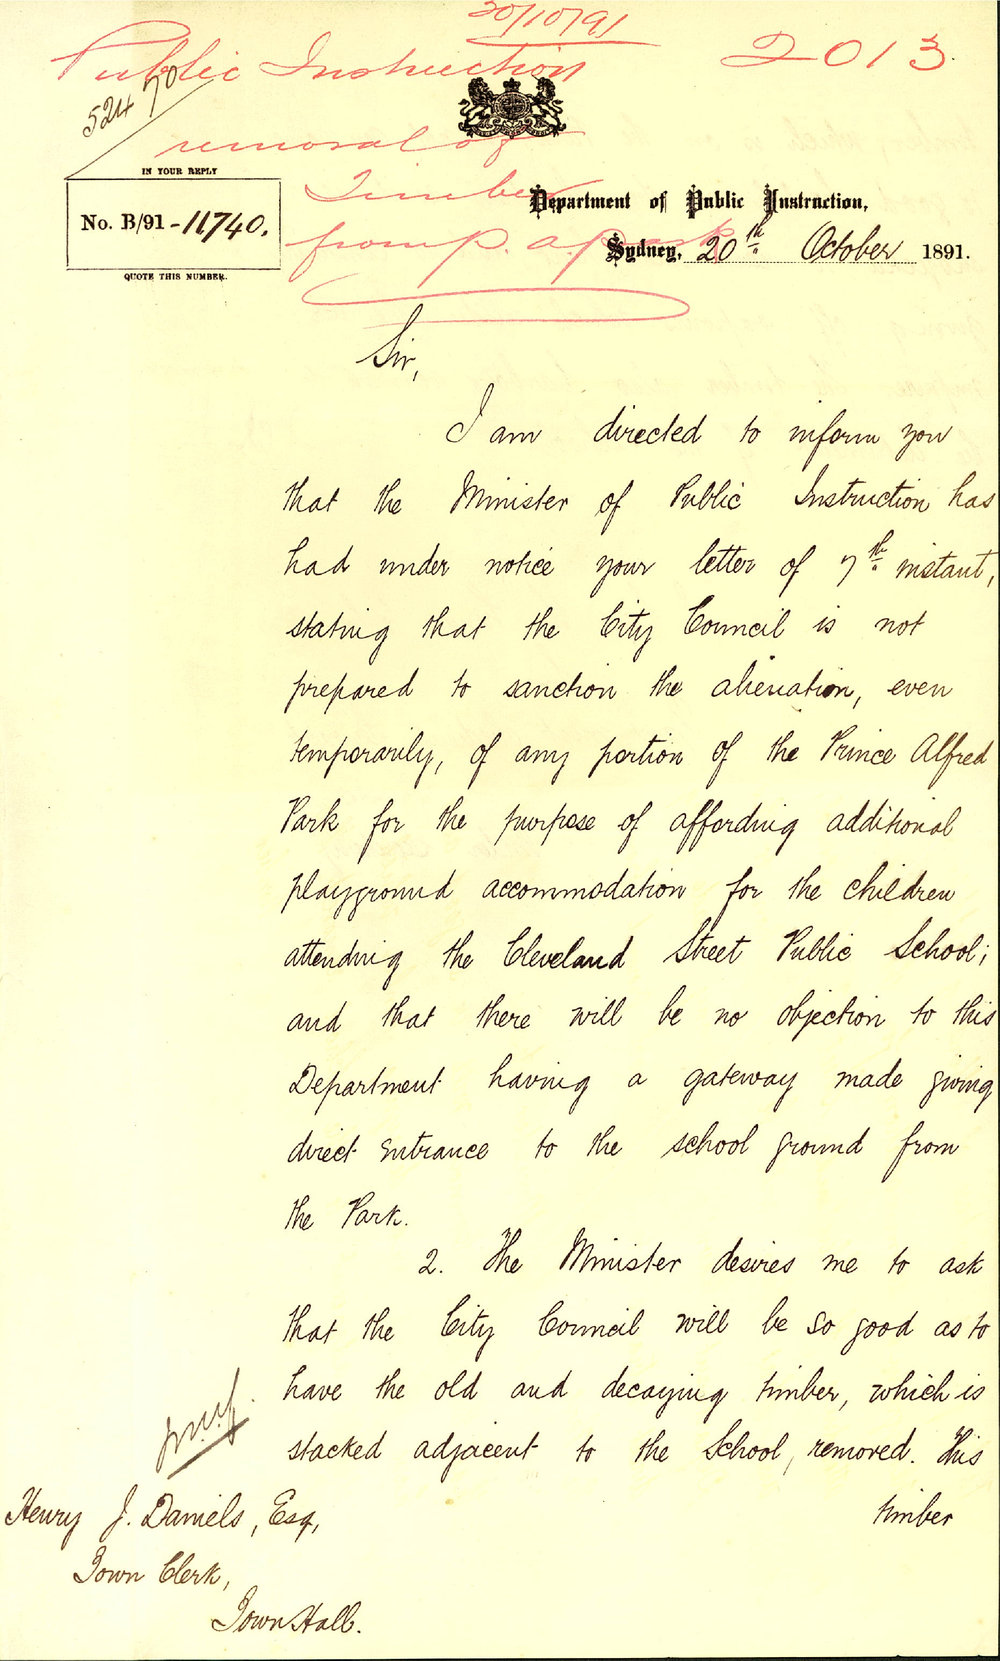 20/10/91
Public Instruction 2013
524 70
removal of
Timber
from P. A. Park
IN YOUR REPLY
No. B/91-11740.
QUOTE THIS NUMBER.
Department of Public Instruction,
Sydney, 20th October 1891.
Sir,
I am directed to inform you
that the Minister of Public Instruction has
had under notice your letter of 7th instant,
stating that the City Council is not
prepared to sanction the alienation, even
temporarily, of any portion of the Prince Alfred
Park for the purpose of affording additional
playground accommodation for the children
attending the Cleveland Street Public School;
and that there will be no objection to this
Department having a gateway made giving
direct entrance to the school ground from
the Park.
2. The Minister desires me to ask
that the City Council will be so good as to
have the old and decaying timber, which is
stacked adjacent to the School, removed. This
timber
Henry J. Daniels, Esq,
Town Clerk,
Town Hall.